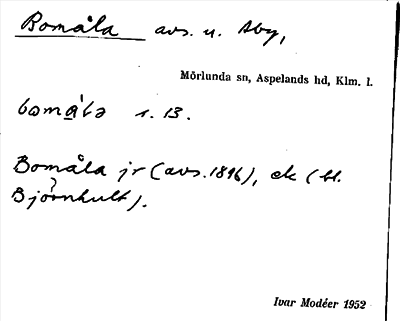 Bomåla avs. u. Åby,
Mörlunda sn, Aspelands hd, Klm. l.
bomå̀la s. 13.
Bomåla jr (avs. 1896), ek (bl.
Björnhult).
Ivar Modéer 1952